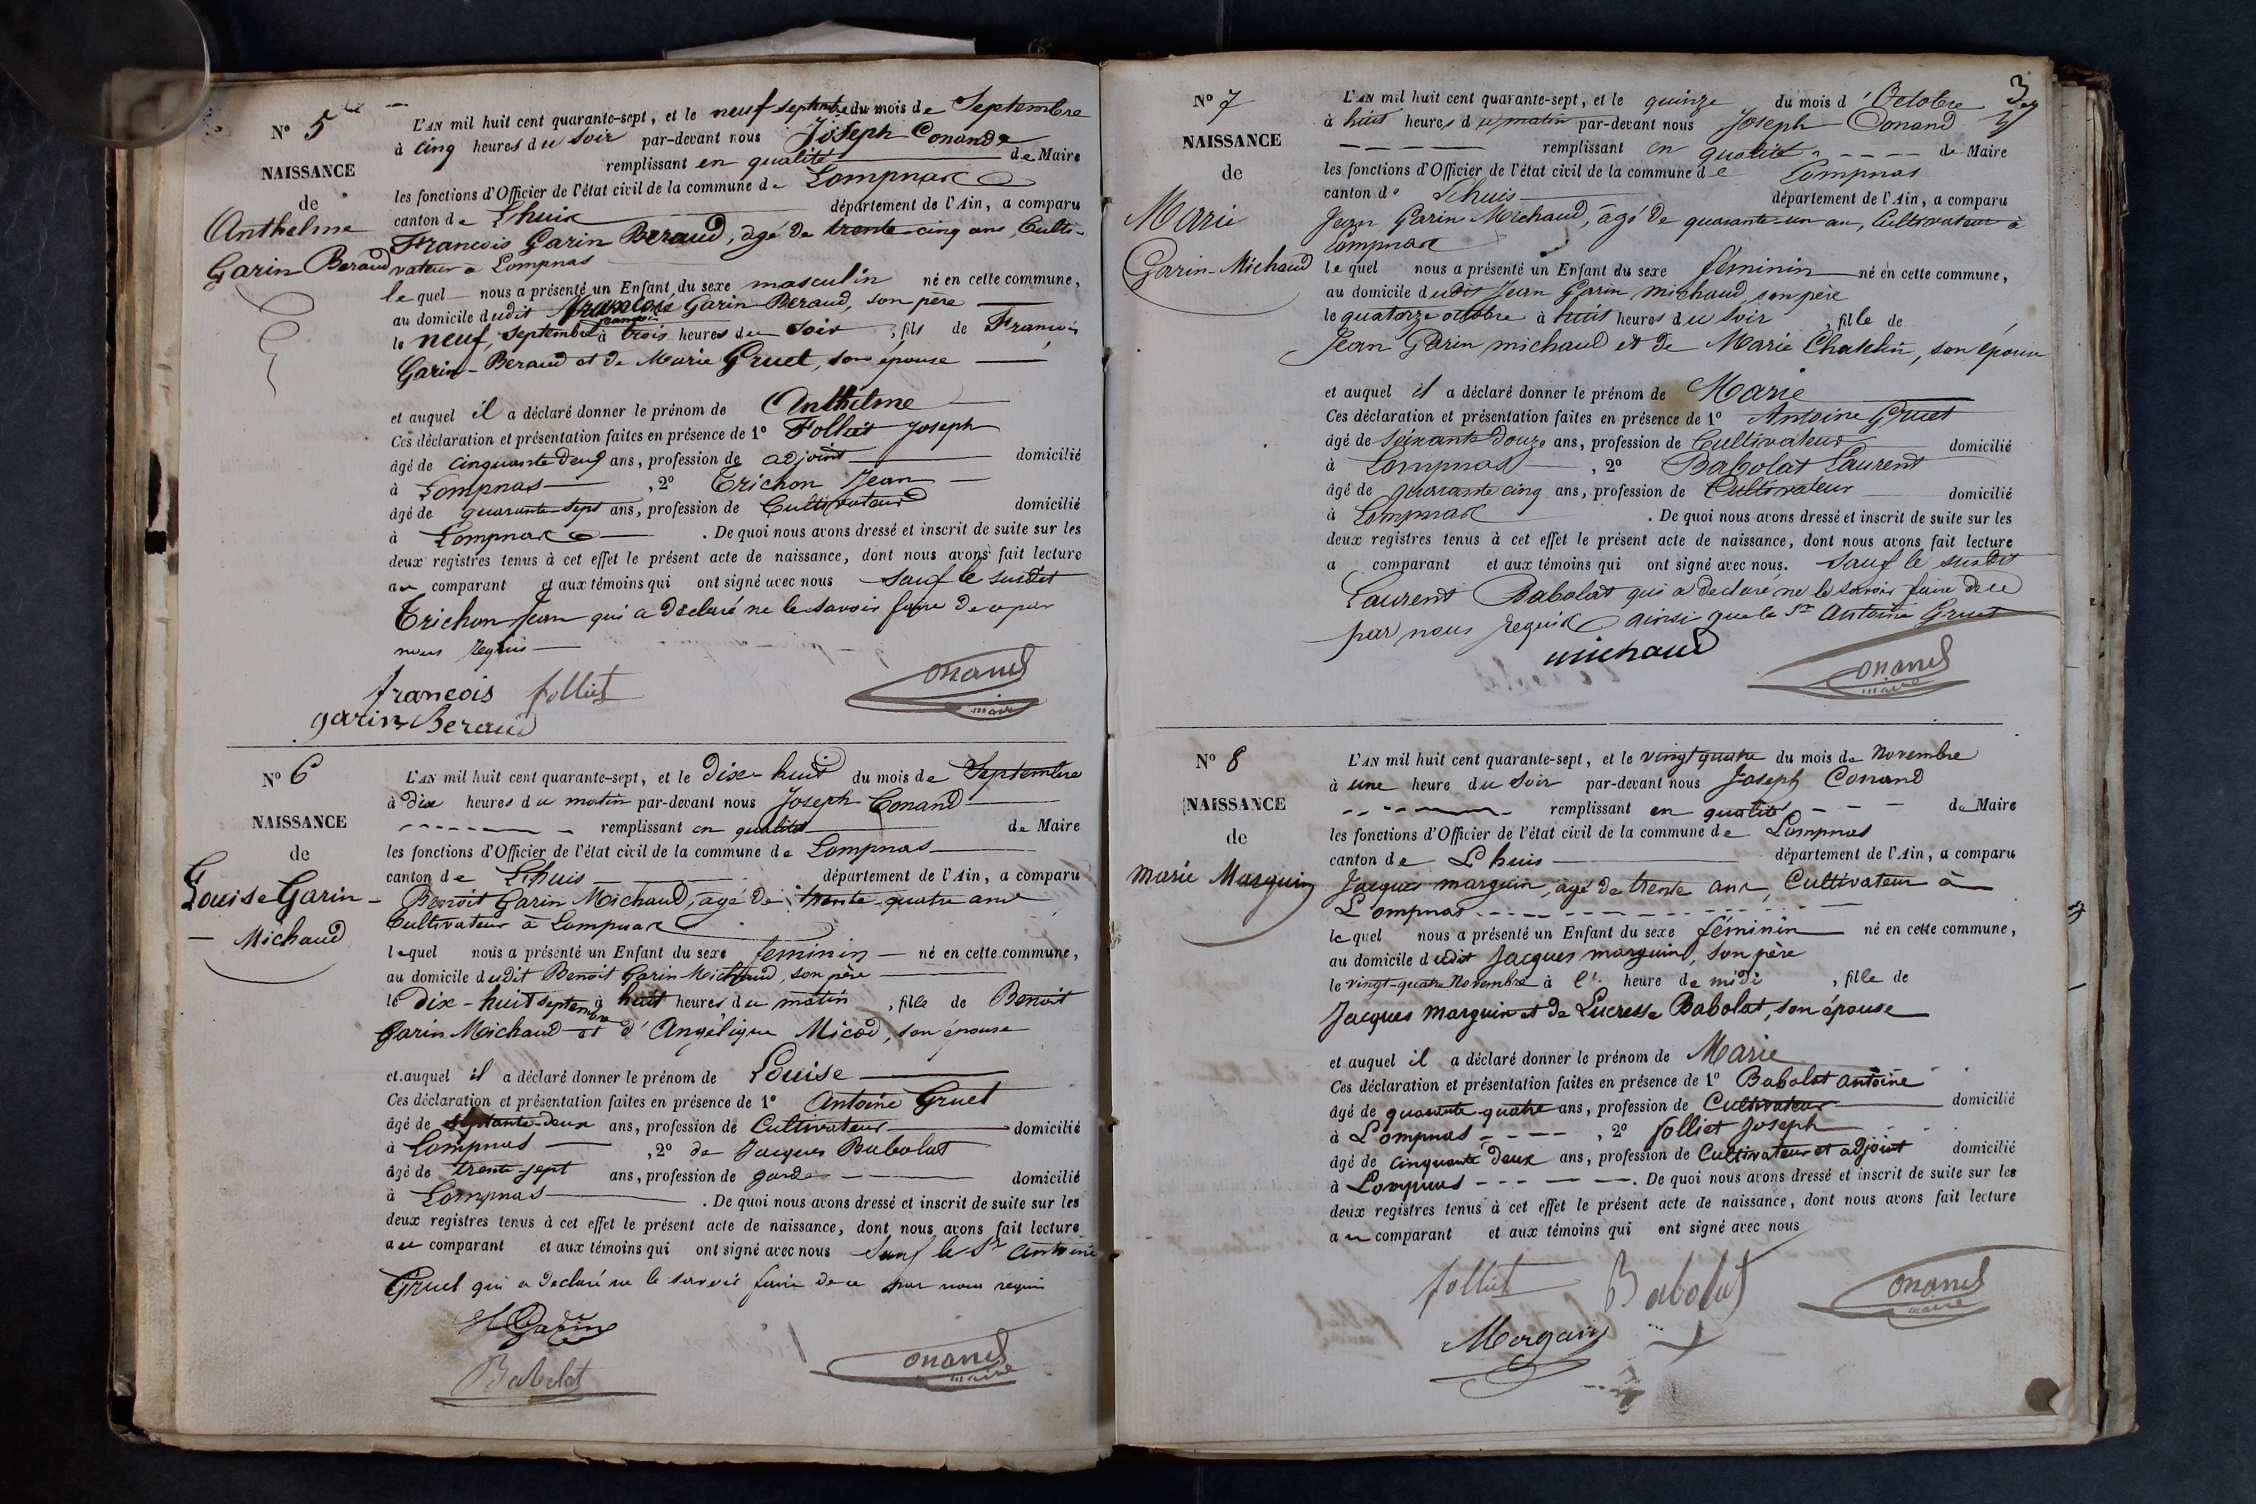 N° 5
NAISSANCE
de
Anthelme
Garin Beraud
L'AN mil huit cent quarante-sept, et le neuf septembre du mois de Septembre
à cinq heures du soir par-devant nous Joseph Conand
remplissant en qualité de Maire
les fonctions d'Officier de l'état civil de la commune de Lompnas
canton de Lhuis département de l'Ain, a comparu
François Garin Beraud, âgé de trente cinq ans, Culti-
vateur à Lompnas
lequel nous a présenté un Enfant du sexe masculin né en cette commune,
au domicile dudit François Garin Beraud, son père
le neuf, septembre à trois heures du soir, fils de François
Garin-Beraud et de Marie Gruet, son épouse
et auquel il a déclaré donner le prénom de Anthelme
Ces déclaration et présentation faites en présence de 1° Folliet Joseph
âgé de cinquante deux ans, profession de adjoint domicilié
à Lompnas, 2° Trichon Jean
âgé de quarante-sept ans, profession de Cultivateur domicilié
à Lompnas. De quoi nous avons dressé et inscrit de suite sur les
deux registres tenus à cet effet le présent acte de naissance, dont nous avons fait lecture
au comparant et aux témoins qui ont signé avec nous sauf le susdit
Trichon Jean qui a déclaré ne le savoir faire de ce par
nous requis
françois folliet Conand
garin Beraud maire
N° 6
NAISSANCE
de
Louise Garin-
Michaud
L'AN mil huit cent quarante-sept, et le dix-huit du mois de Septembre
à dix heures du matin par-devant nous Joseph Conand
remplissant en qualité de Maire
les fonctions d'Officier de l'état civil de la commune de Lompnas
canton de Lhuis département de l'Ain, a comparu
Benoit Garin Michaud, âgé de trente-quatre ans
Cultivateur à Lompnas
lequel nous a présenté un Enfant du sexe féminin né en cette commune,
au domicile dudit Benoit Garin Michaud, son père
le dix-huit septembre à huit heures du matin, fille de Benoit
Garin Michaud et d'Angélique Micod, son épouse
et auquel il a déclaré donner le prénom de Louise
Ces déclaration et présentation faites en présence de 1° Antoine Gruet
âgé de septante-deux ans, profession de Cultivateur domicilié
à Lompnas, 2° de Jacques Babolat
âgé de trente-sept ans, profession de garde domicilié
à Lompnas. De quoi nous avons dressé et inscrit de suite sur les
deux registres tenus à cet effet le présent acte de naissance, dont nous avons fait lecture
au comparant et aux témoins qui ont signé avec nous sauf le Sr Antoine
Gruet qui a déclaré ne le savoir faire de ce par nous requis
Garin
Babolat Conand
maire
3
N° 7
NAISSANCE
de
Marie
Garin-Michaud
L'AN mil huit cent quarante-sept, et le quinze du mois d'Octobre
à huit heures du matin par-devant nous Joseph Conand
remplissant en qualité de Maire
les fonctions d'Officier de l'état civil de la commune de Lompnas
canton de Lhuis département de l'Ain, a comparu
Jean Garin Michaud, âgé de quarante-un an, Cultivateur à
Lompnas
lequel nous a présenté un Enfant du sexe féminin né en cette commune,
au domicile dudit Jean Garin michaud, son père
le quatorze octobre à huit heures du soir, fille de
Jean Garin michaud et de Marie Chatelin, son épouse
et auquel il a déclaré donner le prénom de Marie
Ces déclaration et présentation faites en présence de 1° Antoine Gruet
âgé de soixante douze ans, profession de Cultivateur domicilié
à Lompnas, 2° Babolat Laurent
âgé de quarante cinq ans, profession de Cultivateur domicilié
à Lompnas. De quoi nous avons dressé et inscrit de suite sur les
deux registres tenus à cet effet le présent acte de naissance, dont nous avons fait lecture
a comparant et aux témoins qui ont signé avec nous. sauf le susdit
Laurent Babolat qui a déclaré ne le savoir faire de ce
par nous requis ainsi que le Sr Antoine Gruet
michaud Conand
maire
N° 8
NAISSANCE
de
Marie Marguin
L'AN mil huit cent quarante-sept, et le vingt quatre du mois de Novembre
à une heure du soir par-devant nous Joseph Conand
remplissant en qualité de Maire
les fonctions d'Officier de l'état civil de la commune de Lompnas
canton de Lhuis département de l'Ain, a comparu
Jacques marguin, âgé de trente ans, Cultivateur à
Lompnas
lequel nous a présenté un Enfant du sexe féminin né en cette commune,
au domicile dudit Jacques marguin, son père
le vingt-quatre Novembre à l' heure de midi, fille de
Jacques Marguin et de Lucresse Babolat, son épouse
et auquel il a déclaré donner le prénom de Marie
Ces déclaration et présentation faites en présence de 1° Babolat antoine
âgé de quarante-quatre ans, profession de Cultivateur domicilié
à Lompnas, 2° folliet Joseph
âgé de cinquante deux ans, profession de Cultivateur et adjoint domicilié
à Lompnas. De quoi nous avons dressé et inscrit de suite sur les
deux registres tenus à cet effet le présent acte de naissance, dont nous avons fait lecture
au comparant et aux témoins qui ont signé avec nous
folliet Babolat Conand
Marguin maire